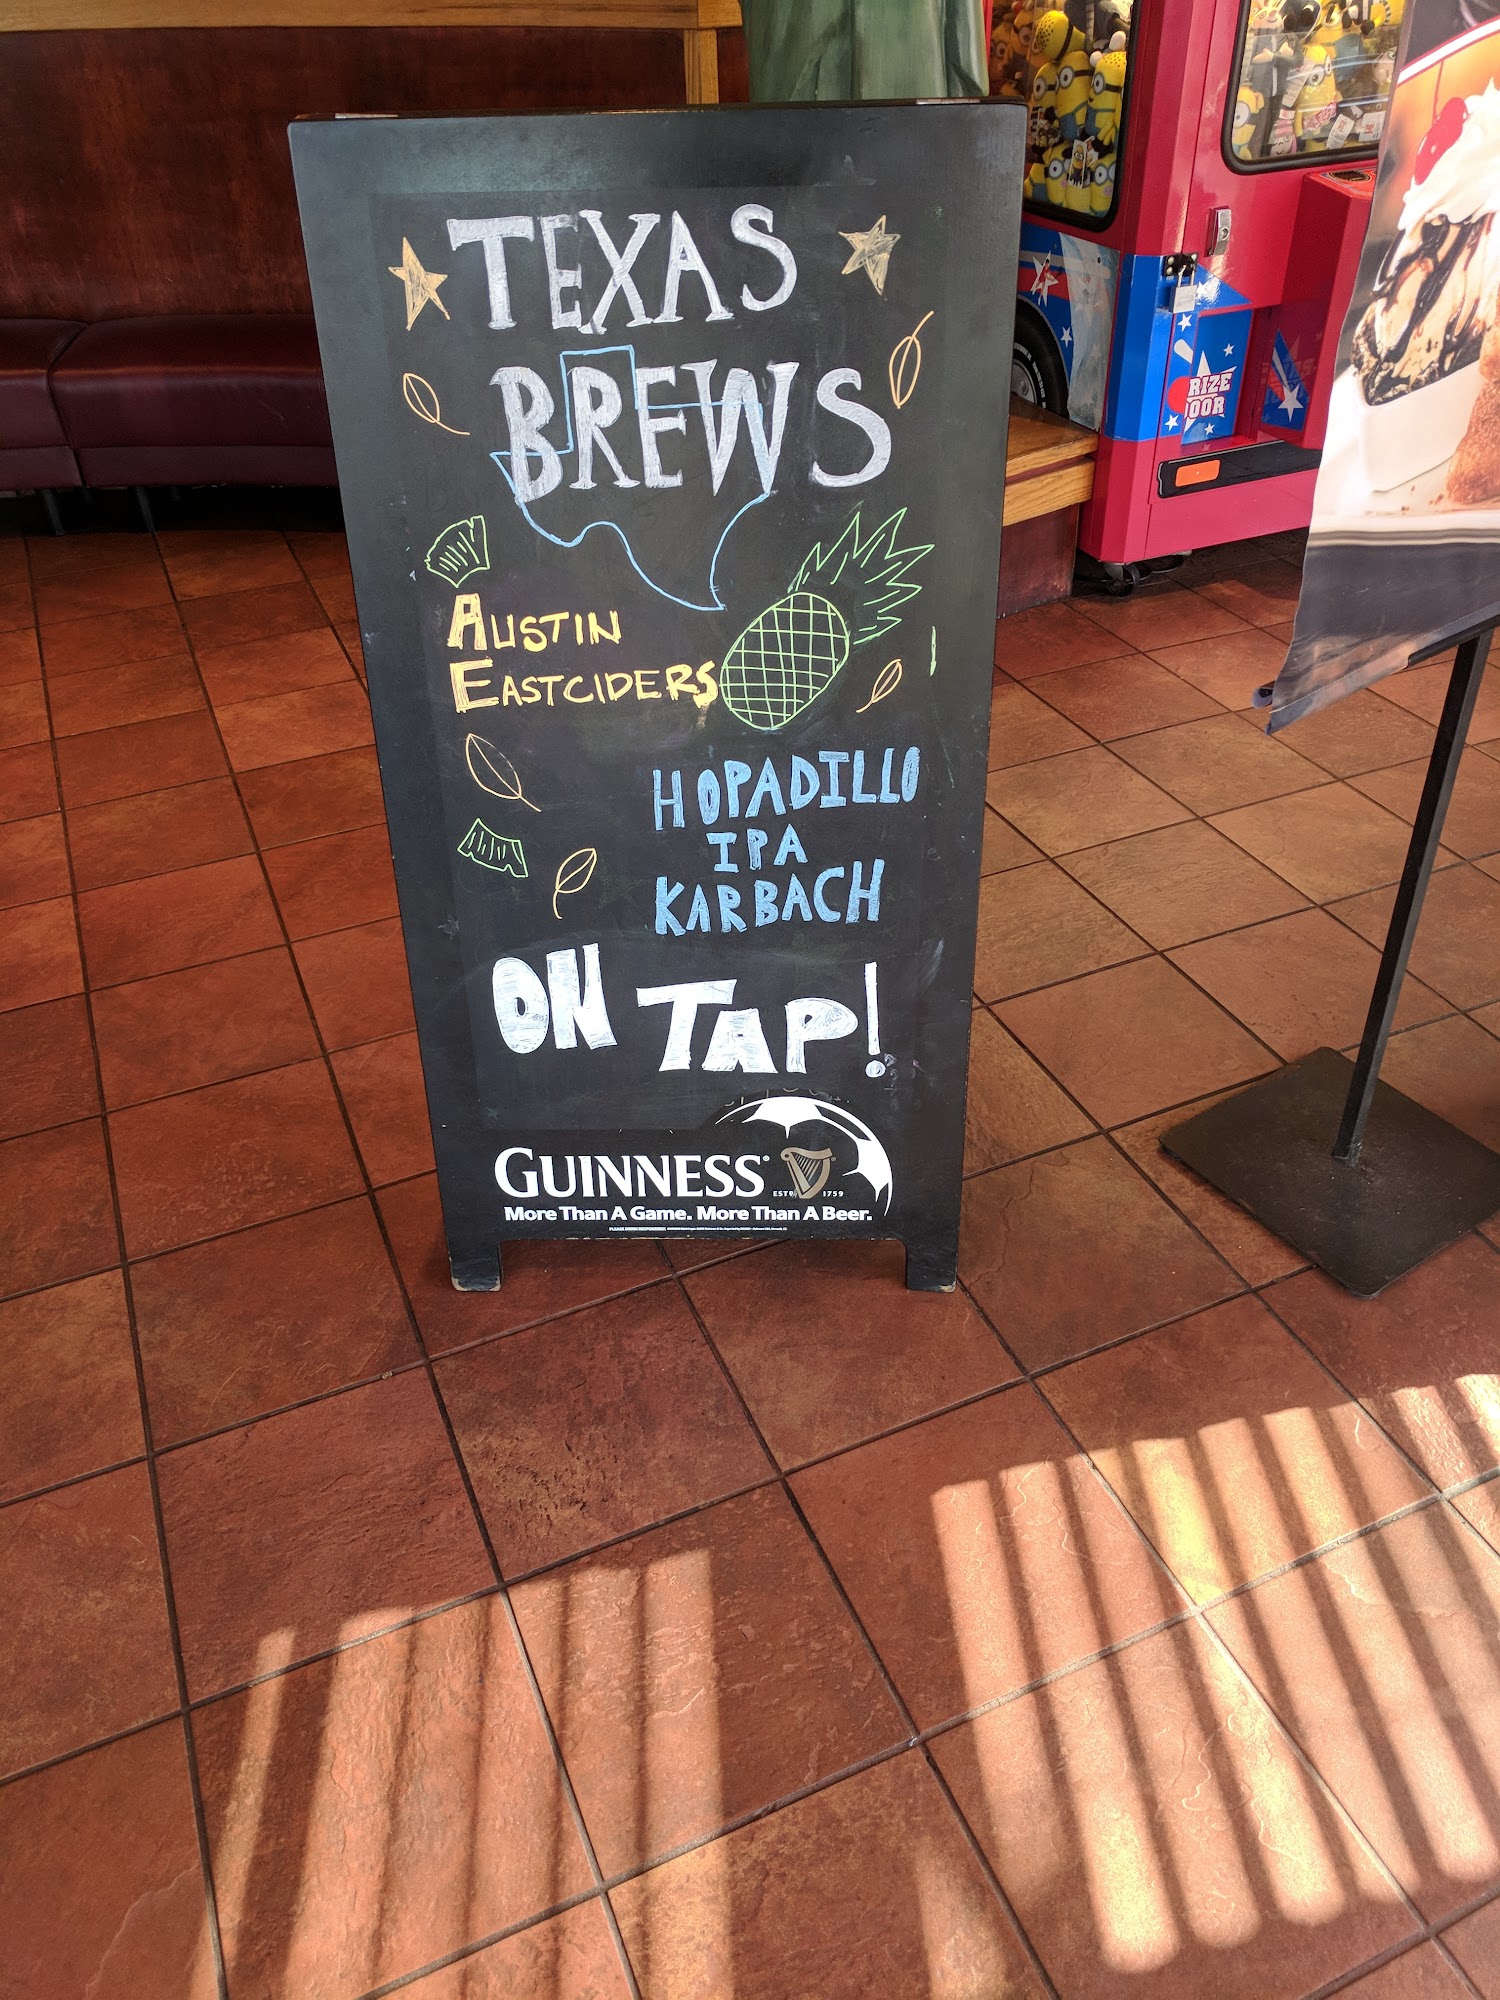 TEXAS
BREWS
AUSTIN
EASTCIDERS
HOPADILLO
IPA
KARBACH
ON TAP!
GUINNESS
ESTD 1759
More Than A Game. More Than A Beer.
RIZE
OOR